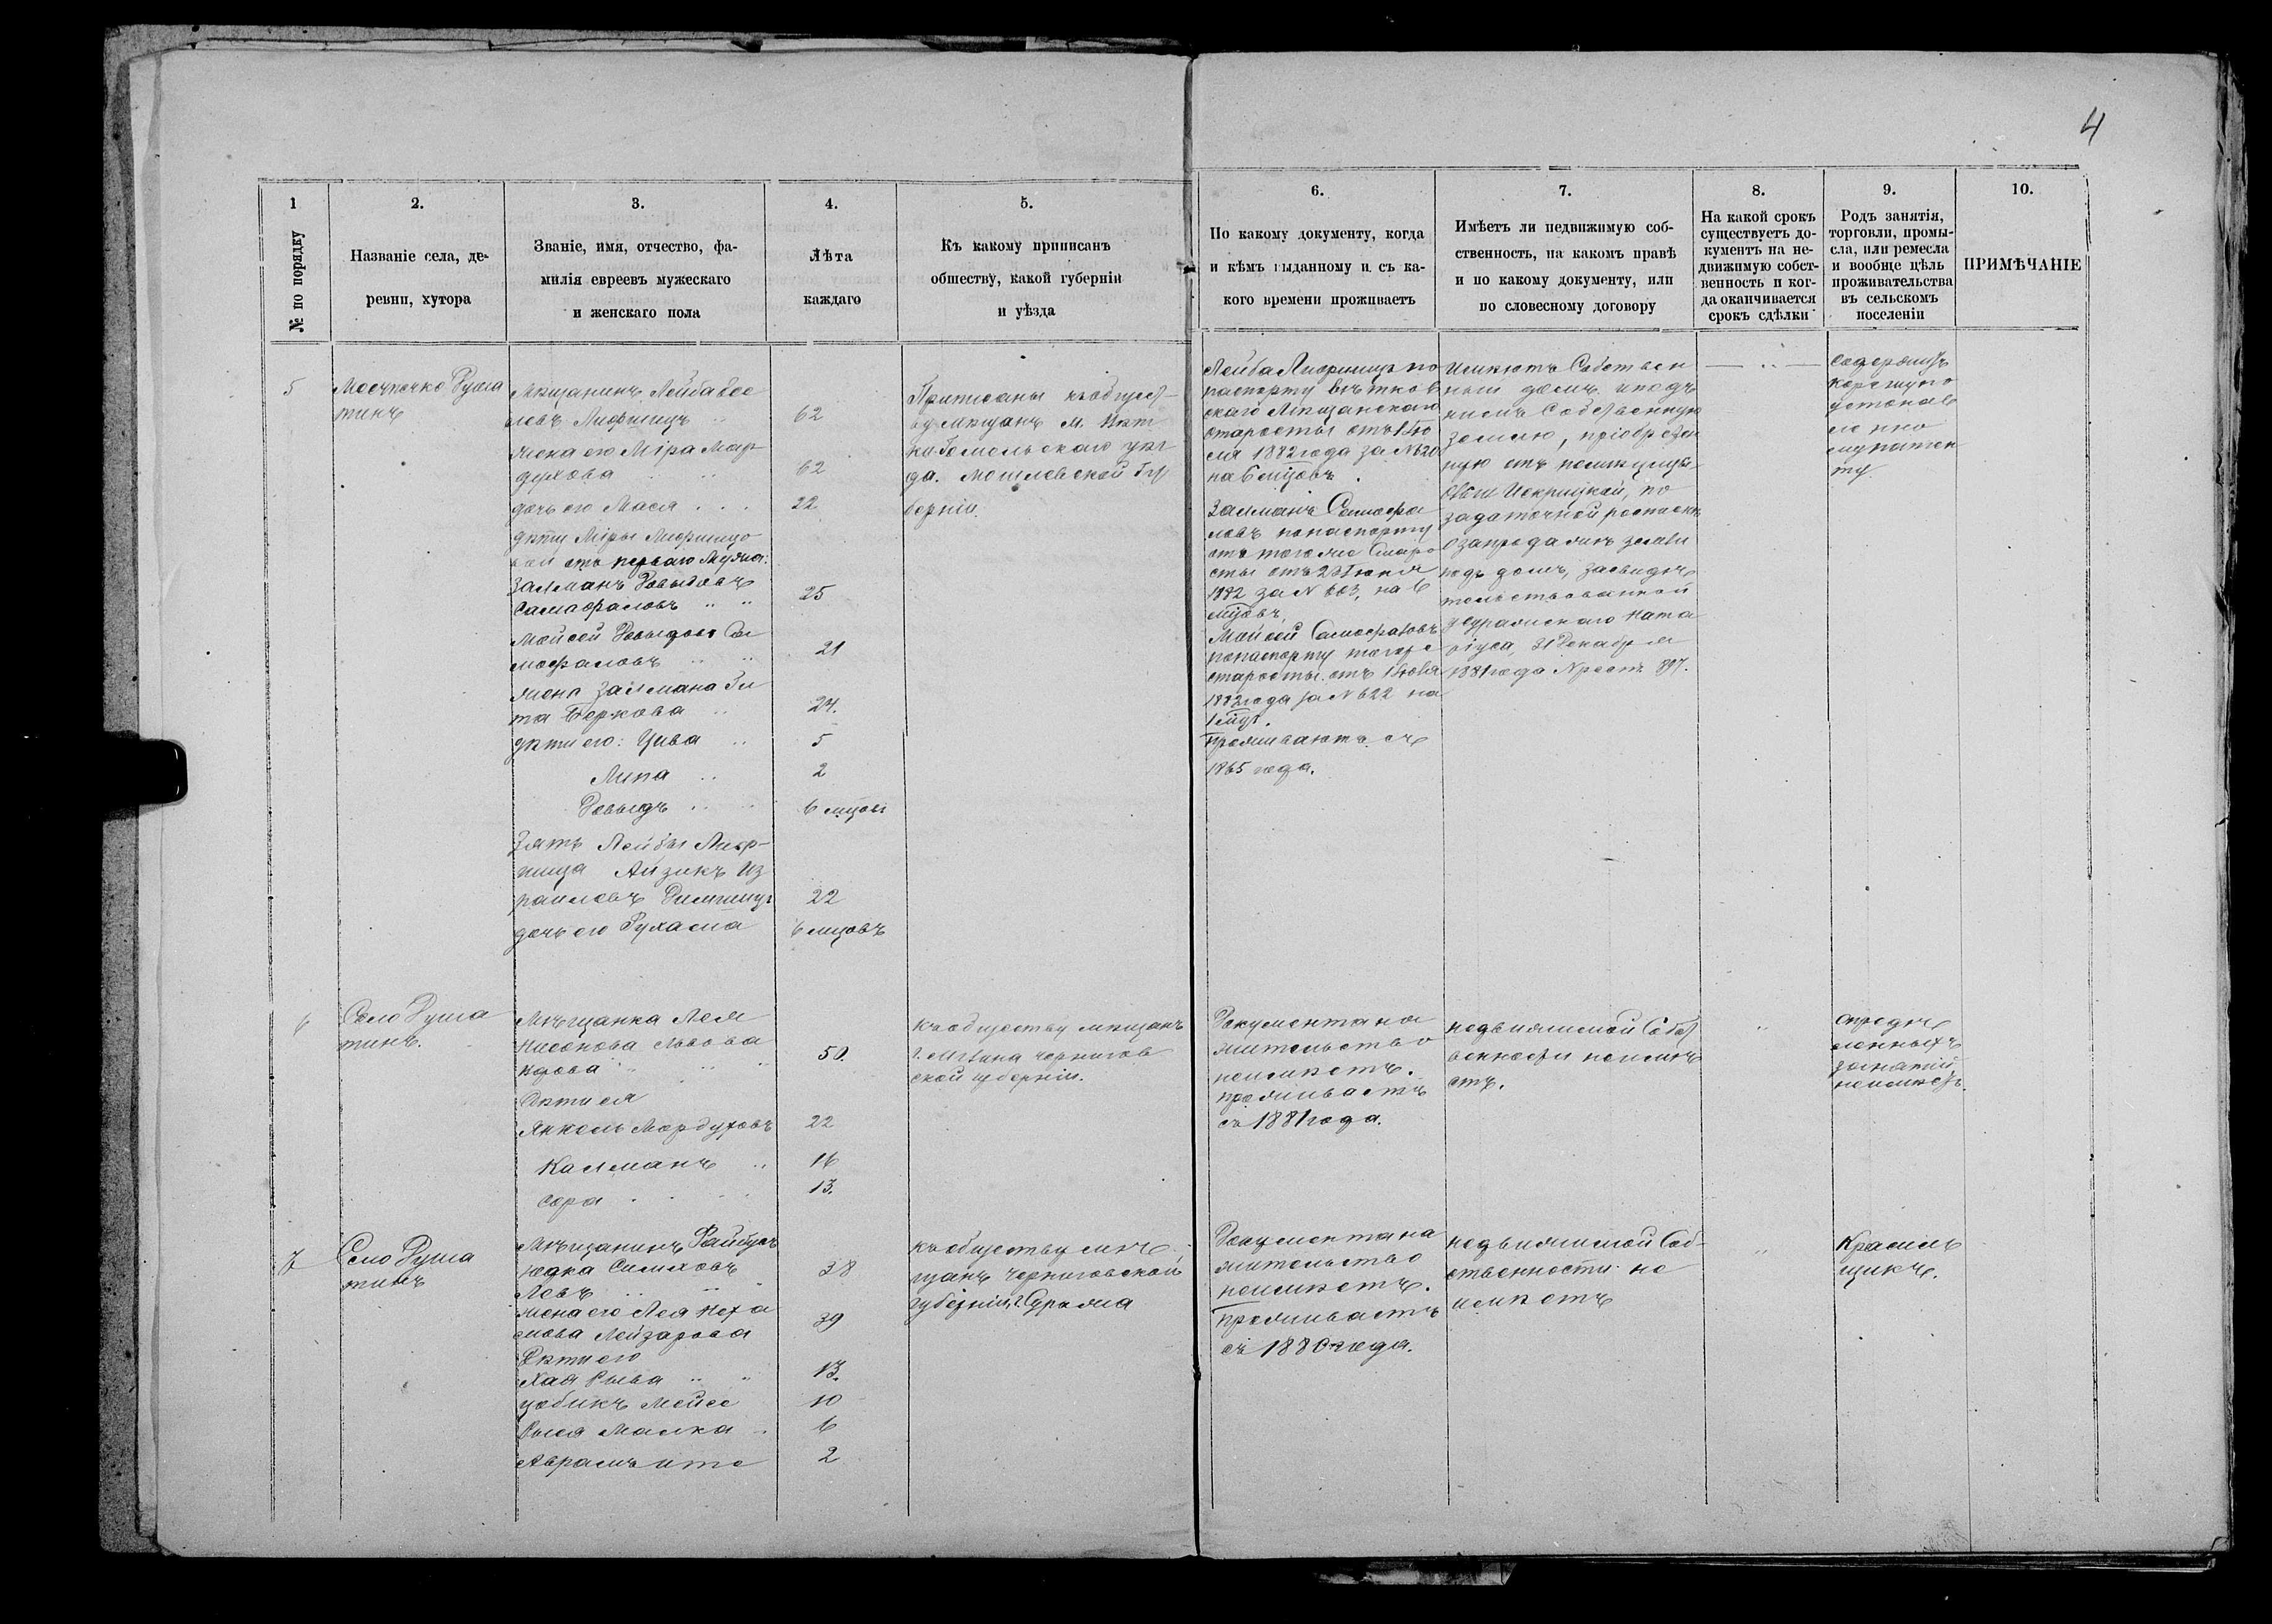 4
1
№ по порядку
2.
Названіе села, де-
ревни, хутора
3.
Званіе, имя, отчество, фа-
милія евреевъ мужескаго
и женскаго пола
4.
Лѣта
каждаго
5.
Къ какому приписанъ
обществу, какой губерніи
и уѣзда
6.
По какому документу, когда
и кѣмъ выданному и съ ка-
кого времени проживаетъ
7.
Имѣетъ ли недвижимую соб-
ственность, на какомъ правѣ
и по какому документу, или
по словесному договору
8.
На какой срокъ
существуетъ до-
кументъ на не-
движимую собст-
венность и ког-
да оканчивается
срокъ сдѣлки
9.
Родъ занятія,
торговли, промы-
сла, или ремесла
и вообще цѣль
проживательства
въ сельскомъ
поселеніи
10.
ПРИМѢЧАНІЕ
5
Мѣстечко Душа
тинъ
Мѣщанинъ Лейба
Лифшицъ
62
жена его Міра Мор
духова
62
дочь его Мася
22
дѣти Міры Лифшицо
вой отъ перваго мужа:
Залманъ Довыдовъ
Самофаловъ
25
Мойсей Довыдовъ Са
мофаловъ
21
жена Залмана Ги
та Беркова
24.
дѣти его: Цива
5
Липа
2
Довыдъ
6 мцовъ
Зять Лейбы Лиф-
шица Айзикъ Из
раилевъ
22
дочь его Рухама
6 мцовъ
Приписаны къ общест-
ву мѣщанъ м. Вѣт
ки Гомельскаго уѣз
да. Могилевской Гу
берніи.
Лейба Лифшицъ по
паспорту вѣтков
скаго Мѣщанскаго
старосты отъ
1882 года за №
на 6 мцовъ.
Залманъ Самофа
ловъ по паспорту
отъ того же Старо
сты отъ 23 Іюня
1882 за № 603, на 6
мцовъ,
Мойсей Самофаловъ
по паспорту того же
старосты отъ
1882 года за № 622 на
проживаютъ съ
1865 года.
Имѣютъ Собствен
ный домъ и подъ
нимъ Собственную
землю, пріобрѣтен
ную отъ помѣщицы
Искрицкой, по
задаточной роспискѣ
о запродажѣ земли
подъ домъ, засвидѣ
тельствованной
у Суражскаго Нота
ріуса, 31 Декабря
1881 года № реестр. 897.
Содержитъ
корчму по
установ
ленно
му патен
ту
6
Село Душа
тинъ.
Мѣщанка Лея
Нисонова
50.
Дѣти ея
Янкель Мордуховъ
22
Калманъ
16
Сора
13.
къ обществу мѣщанъ
г. Мглина Чернигов
ской губерніи.
Документа на
жительство
неимѣетъ.
проживаетъ
съ 1881 года.
недвижимой Собст
венности неимѣ
етъ.
опредѣ
ленныхъ
занятій
неимѣетъ.
7
Село Душа
тинъ
Мѣщанинъ Файбушъ
38
жена его Лея Неха
мова Лейзарова
39
Дѣти его
Хая Рыва
13.
10
Рыся Малка
6
Аврамъ
2
къ обществу мѣ
щанъ Черниговской
губерніи, г. Суража
Документа на
жительство
неимѣетъ.
проживаетъ
съ 1880 года.
недвижимой Соб-
ственности не
имѣетъ
Красиль
щикъ.